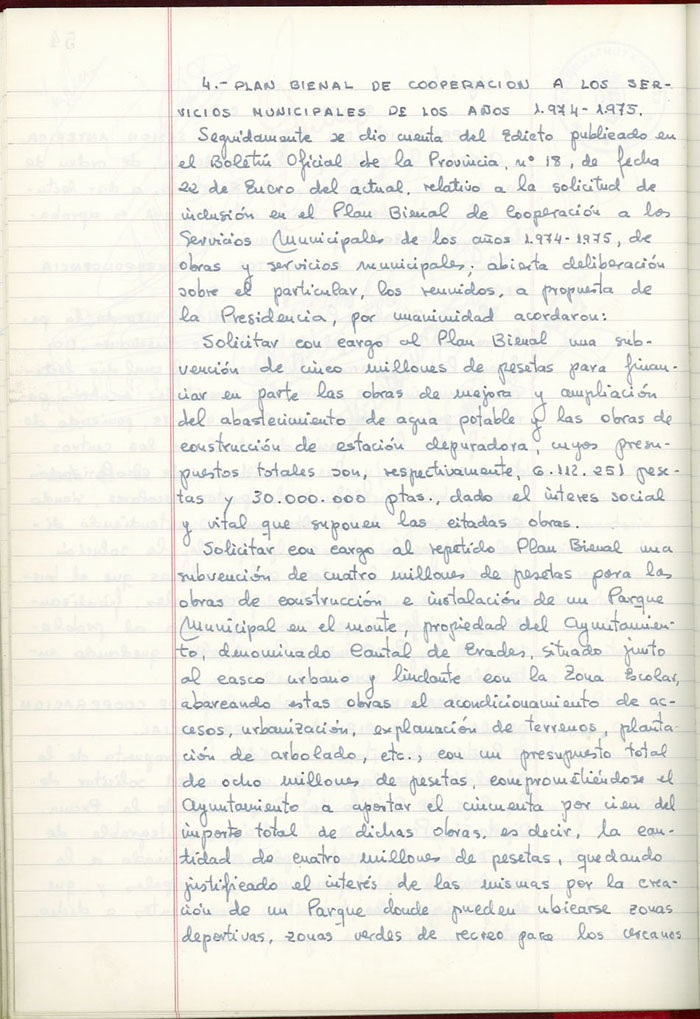 4.- PLAN BIENAL DE COOPERACION A LOS SER-
VICIOS MUNICIPALES DE LOS AÑOS 1.974-1.975.
Seguidamente se dio cuenta del Edicto publicado en
el Boletín Oficial de la Provincia, nº 18, de fecha
22 de Enero del actual, relativo a la solicitud de
inclusión en el Plan Bienal de Cooperación a los
Servicios Municipales de los años 1.974-1975, de
obras y servicios municipales; abierta deliberación
sobre el particular, los reunidos, a propuesta de
la Presidencia, por unanimidad acordaron:
Solicitar con cargo al Plan Bienal una sub-
vención de cinco millones de pesetas para finan-
ciar en parte las obras de mejora y ampliación
del abastecimiento de agua potable y las obras de
construcción de estación depuradora, cuyos presu-
puestos totales son, respectivamente, 6.112.251 pese-
tas y 30.000.000 ptas., dado el interes social
y vital que suponen las citadas obras.
Solicitar con cargo al repetido Plan Bienal una
subvención de cuatro millones de pesetas para las
obras de construcción e instalación de un Parque
Municipal en el monte, propiedad del Ayuntamien-
to, denominado Cantal de Erades, situado junto
al casco urbano y lindante con la Zona Escolar,
abarcando estas obras el acondicionamiento de ac-
cesos, urbanización, explanación de terrenos, planta-
ción de arbolado, etc., con un presupuesto total
de ocho millones de pesetas, comprometiéndose el
Ayuntamiento a aportar el cincuenta por cien del
importe total de dichas obras, es decir, la can-
tidad de cuatro millones de pesetas, quedando
justificado el interés de las mismas por la crea-
ción de un Parque donde pueden ubicarse zonas
deportivas, zonas verdes de recreo para los cercanos